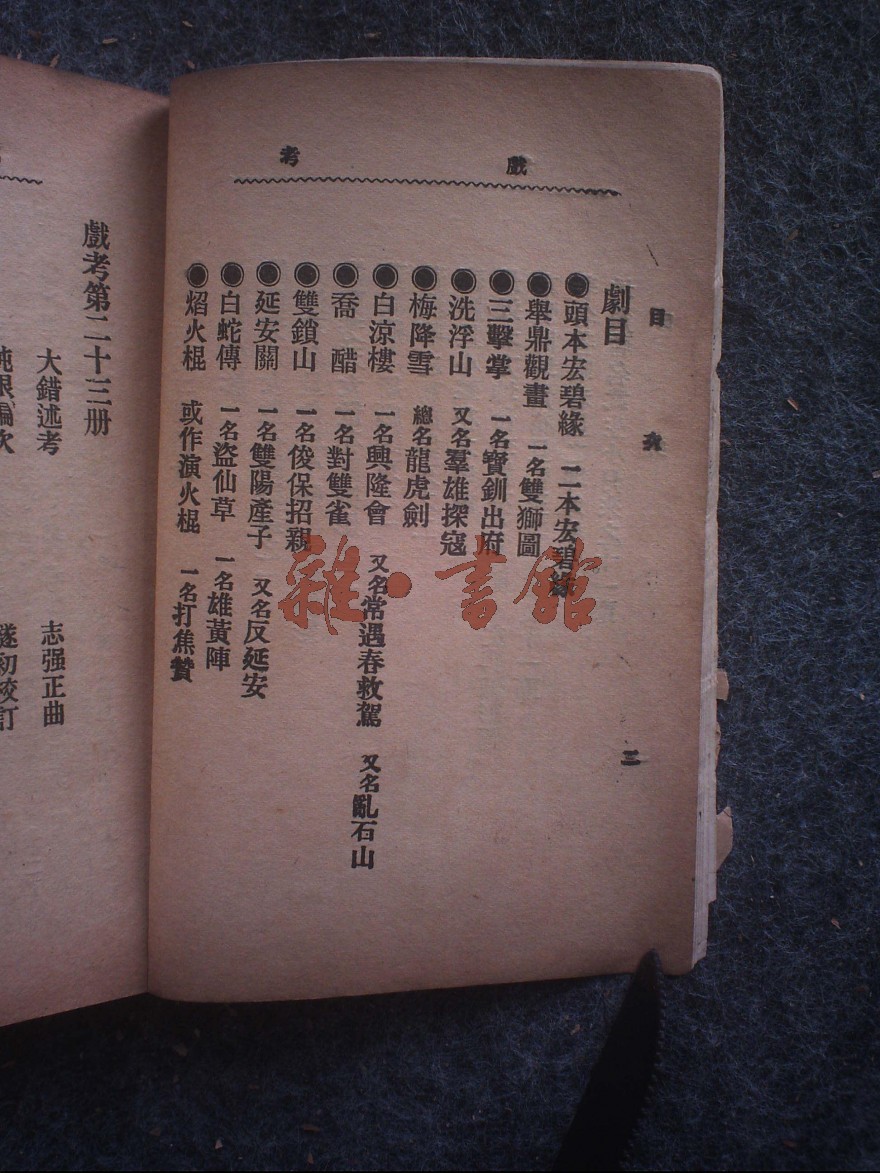 戲考
目次
三
劇目
●頭本宏碧緣 二本宏碧緣
●舉鼎觀畫 一名雙獅圖
●三擊掌 一名寶釧出府
●洗浮山 又名羣雄探寇
●梅降雪 總名龍虎劍
●白涼樓 一名興隆會 又名常遇春救駕 又名亂石山
●喬醋 一名對雙雀
●雙鎖山 一名俊保招親
●延安關 一名雙陽產子 又名反延安
●白蛇傳 一名盜仙草 一名雄黃陣
●焰火棍 或作演火棍 一名打焦贊
戲考第二十三册
大錯述考 志强正曲
編次 遂初校訂
雜·書館